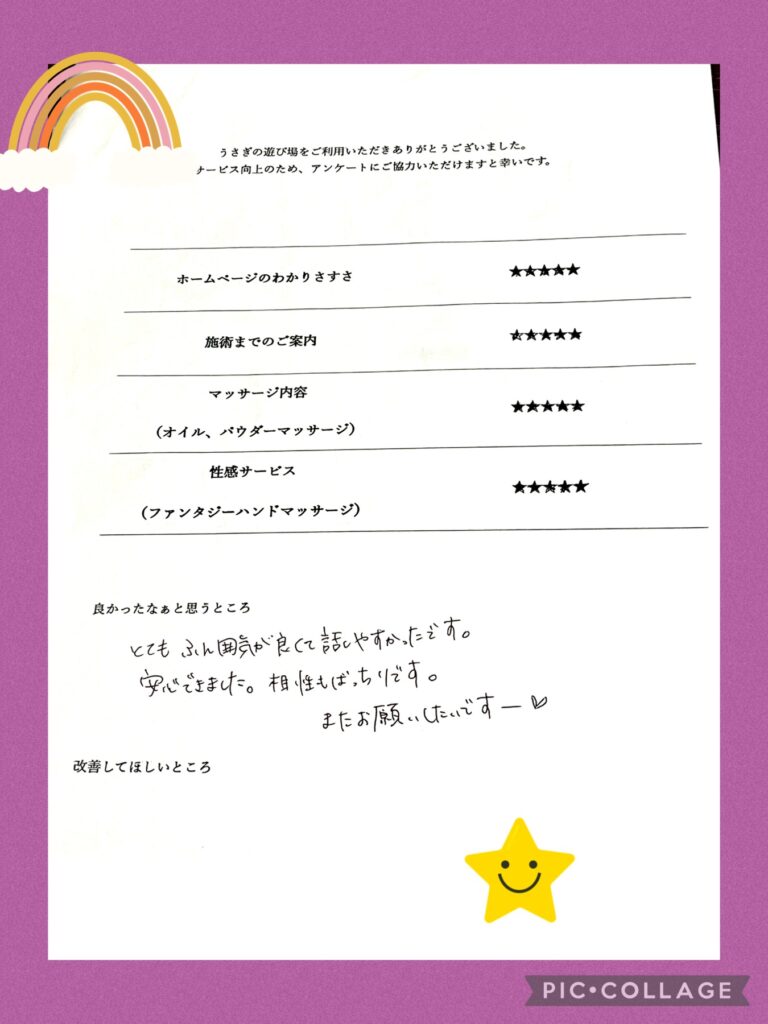 うさぎの遊び場をご利用いただきありがとうございました。
サービス向上のため、アンケートにご協力いただけますと幸いです。
ホームページのわかりさすさ ★★★★★
施術までのご案内 ★★★★★
マッサージ内容
（オイル、パウダーマッサージ） ★★★★★
性感サービス
（ファンタジーハンドマッサージ） ★★★★★
良かったなぁと思うところ
とても ふん囲気が良くて話しやすかったです。
安心できました。相性もばっちりです。
またお願いしたいですー♡
改善してほしいところ
PIC•COLLAGE